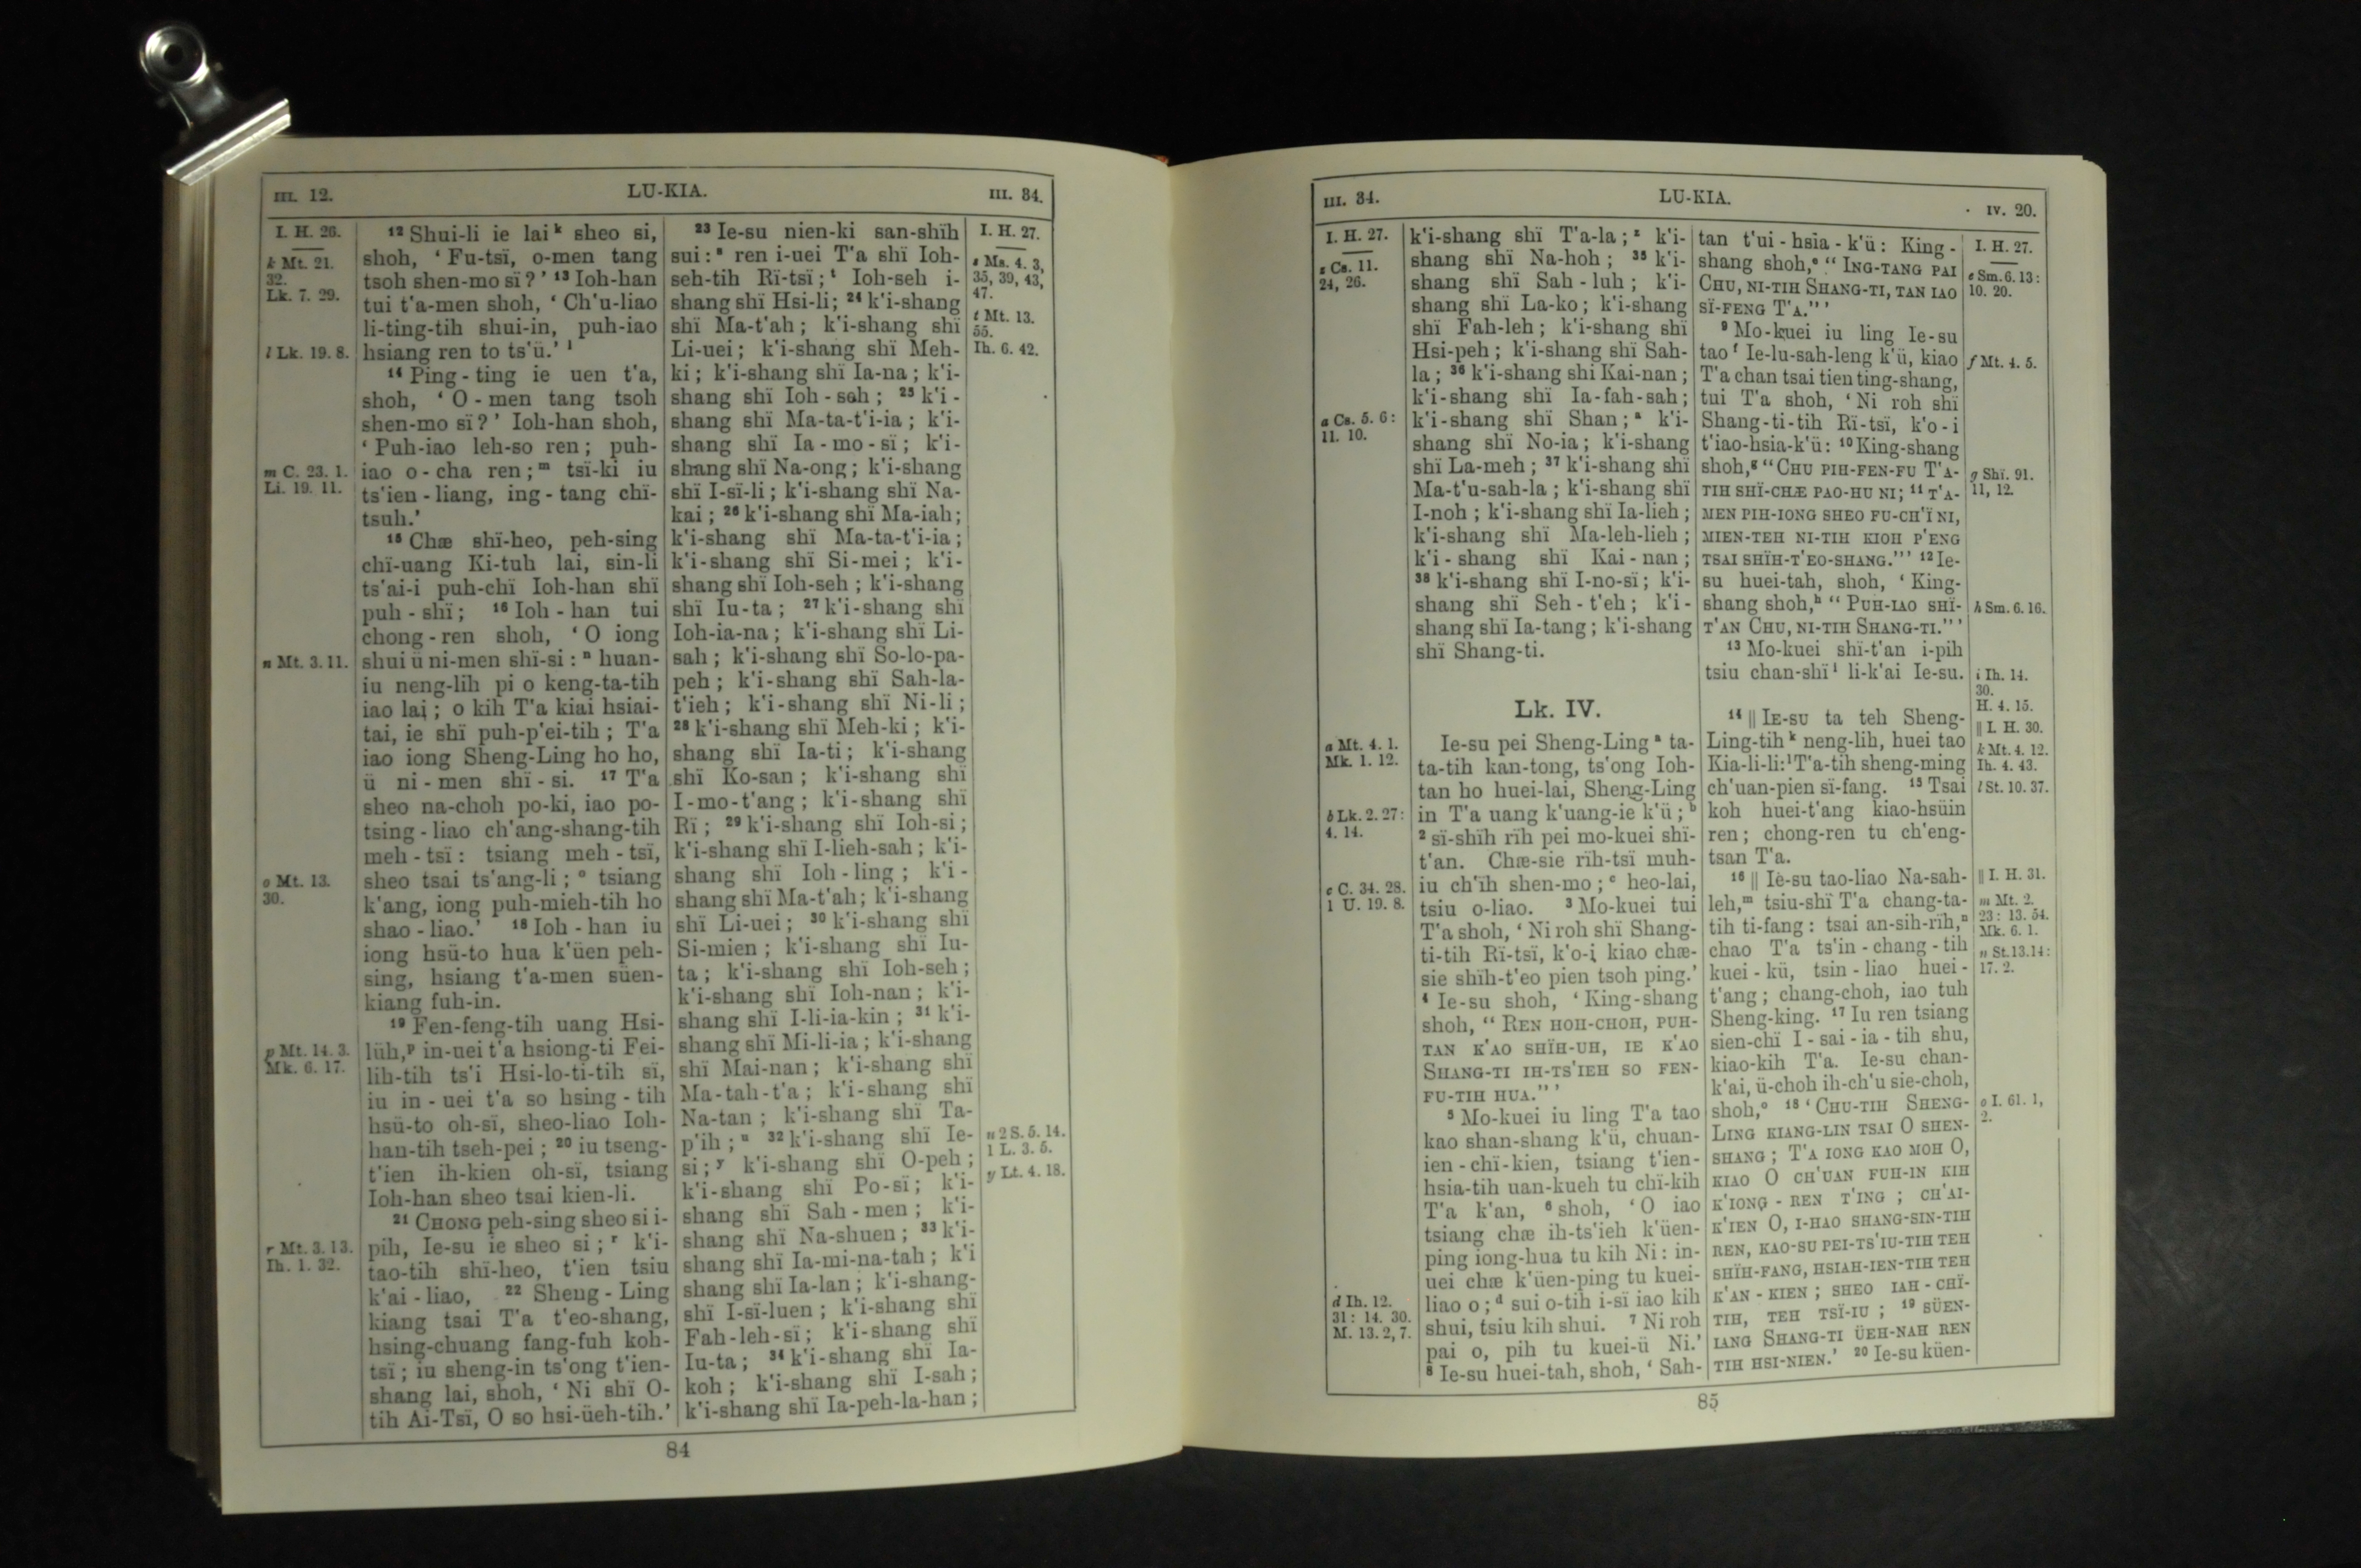 III. 12.
LU-KIA.
III. 34.
I. H. 26.
k Mt. 21.
32.
Lk. 7. 29.
l Lk. 19. 8.
m C. 23. 1.
Li. 19. 11.
n Mt. 3. 11.
o Mt. 13.
30.
p Mt. 14. 3.
Mk. 6. 17.
r Mt. 3. 13.
Ih. 1. 32.
12 Shui-li ie lai k sheo si,
shoh, ‘ Fu-tsï, o-men tang
tsoh shen-mo sï ? ’ 13 Ioh-han
tui t'a-men shoh, ‘ Ch'u-liao
li-ting-tih shui-in, puh-iao
hsiang ren to ts'ü.’ l
14 Ping-ting ie uen t'a,
shoh, ‘ O-men tang tsoh
shen-mo sï ? ’ Ioh-han shoh,
‘ Puh-iao leh-so ren ; puh-
iao o-cha ren ; m tsï-ki iu
ts'ien-liang, ing-tang chï-
tsuh.’
15 Chæ shï-heo, peh-sing
chï-uang Ki-tuh lai, sin-li
ts'ai-i puh-chï Ioh-han shï
puh-shï ; 16 Ioh-han tui
chong-ren shoh, ‘ O iong
shui ü ni-men shï-si : n huan-
iu neng-lih pi o keng-ta-tih
iao lai ; o kih T'a kiai hsiai-
tai, ie shï puh-p'ei-tih ; T'a
iao iong Sheng-Ling ho ho,
ü ni-men shï-si. 17 T'a
sheo na-choh po-ki, iao po-
tsing-liao ch'ang-shang-tih
meh-tsï : tsiang meh-tsï,
sheo tsai ts'ang-li ; o tsiang
k'ang, iong puh-mieh-tih ho
shao-liao.’ 18 Ioh-han iu
iong hsü-to hua k'üen peh-
sing, hsiang t'a-men süen-
kiang fuh-in.
19 Fen-feng-tih uang Hsi-
lüh, p in-uei t'a hsiong-ti Fei-
lih-tih ts'i Hsi-lo-ti-tih sï,
iu in-uei t'a so hsing-tih
hsü-to oh-sï, sheo-liao Ioh-
han-tih tseh-pei ; 20 iu tseng-
t'ien ih-kien oh-sï, tsiang
Ioh-han sheo tsai kien-li.
21 CHONG peh-sing sheo si i-
pih, Ie-su ie sheo si ; r k'i-
tao-tih shï-heo, t'ien tsiu
k'ai-liao, 22 Sheng-Ling
kiang tsai T'a t'eo-shang,
hsing-chuang fang-fuh koh-
tsï ; iu sheng-in ts'ong t'ien-
shang lai, shoh, ‘ Ni shï O-
tih Ai-Tsï, O so hsi-üeh-tih.’
23 Ie-su nien-ki san-shïh
sui : s ren i-uei T'a shï Ioh-
seh-tih Rï-tsï ; t Ioh-seh i-
shang shï Hsi-li ; 24 k'i-shang
shï Ma-t'ah ; k'i-shang shï
Li-uei ; k'i-shang shï Meh-
ki ; k'i-shang shï Ia-na ; k'i-
shang shï Ioh-seh ; 25 k'i-
shang shï Ma-ta-t'i-ia ; k'i-
shang shï Ia-mo-sï ; k'i-
shang shï Na-ong ; k'i-shang
shï I-sï-li ; k'i-shang shï Na-
kai ; 26 k'i-shang shï Ma-iah ;
k'i-shang shï Ma-ta-t'i-ia ;
k'i-shang shï Si-mei ; k'i-
shang shï Ioh-seh ; k'i-shang
shï Iu-ta ; 27 k'i-shang shï
Ioh-ia-na ; k'i-shang shï Li-
sah ; k'i-shang shï So-lo-pa-
peh ; k'i-shang shï Sah-la-
t'ieh ; k'i-shang shï Ni-li ;
28 k'i-shang shï Meh-ki ; k'i-
shang shï Ia-ti ; k'i-shang
shï Ko-san ; k'i-shang shï
I-mo-t'ang ; k'i-shang shï
Rï ; 29 k'i-shang shï Ioh-si ;
k'i-shang shï I-lieh-sah ; k'i-
shang shï Ioh-ling ; k'i-
shang shï Ma-t'ah ; k'i-shang
shï Li-uei ; 30 k'i-shang shï
Si-mien ; k'i-shang shï Iu-
ta ; k'i-shang shï Ioh-seh ;
k'i-shang shï Ioh-nan ; k'i-
shang shï I-li-ia-kin ; 31 k'i-
shang shï Mi-li-ia ; k'i-shang
shï Mai-nan ; k'i-shang shï
Ma-tah-t'a ; k'i-shang shï
Na-tan ; k'i-shang shï Ta-
p'ih ; u 32 k'i-shang shï Ie-
si ; y k'i-shang shï O-peh ;
k'i-shang shï Po-sï ; k'i-
shang shï Sah-men ; k'i-
shang shï Na-shuen ; 33 k'i-
shang shï Ia-mi-na-tah ; k'i
shang shï Ia-lan ; k'i-shang-
shï I-sï-luen ; k'i-shang shï
Fah-leh-sï ; k'i-shang shï
Iu-ta ; 34 k'i-shang shï Ia-
koh ; k'i-shang shï I-sah ;
k'i-shang shï Ia-peh-la-han ;
I. H. 27.
s Ms. 4. 3,
35, 39, 43,
47.
t Mt. 13.
55.
Ih. 6. 42.
u 2 S. 5. 14.
1 L. 3. 5.
y Lt. 4. 18.
84
III. 34.
LU-KIA.
IV. 20.
I. H. 27.
z Cs. 11.
24, 26.
a Cs. 5. 6 :
11. 10.
a Mt. 4. 1.
Mk. 1. 12.
b Lk. 2. 27 :
4. 14.
c C. 34. 28.
1 U. 19. 8.
d Ih. 12.
31 : 14. 30.
M. 13. 2, 7.
k'i-shang shï T'a-la ; z k'i-
shang shï Na-hoh ; 35 k'i-
shang shï Sah-luh ; k'i-
shang shï La-ko ; k'i-shang
shï Fah-leh ; k'i-shang shï
Hsi-peh ; k'i-shang shï Sah-
la ; 36 k'i-shang shi Kai-nan ;
k'i-shang shï Ia-fah-sah ;
k'i-shang shï Shan ; a k'i-
shang shï No-ia ; k'i-shang
shï La-meh ; 37 k'i-shang shï
Ma-t'u-sah-la ; k'i-shang shï
I-noh ; k'i-shang shï Ia-lieh ;
k'i-shang shï Ma-leh-lieh ;
k'i-shang shï Kai-nan ;
38 k'i-shang shï I-no-sï ; k'i-
shang shï Seh-t'eh ; k'i-
shang shï Ia-tang ; k'i-shang
shï Shang-ti.
Lk. IV.
Ie-su pei Sheng-Ling a ta-
ta-tih kan-tong, ts'ong Ioh-
tan ho huei-lai, Sheng-Ling
in T'a uang k'uang-ie k'ü ; b
2 sï-shïh rïh pei mo-kuei shï-
t'an. Chæ-sie rïh-tsï muh-
iu ch'ïh shen-mo ; c heo-lai,
tsiu o-liao. 3 Mo-kuei tui
T'a shoh, ‘ Ni roh shï Shang-
ti-tih Rï-tsï, k'o-i kiao chæ-
sie shïh-t'eo pien tsoh ping.’
4 Ie-su shoh, ‘ King-shang
shoh, “ REN HOH-CHOH, PUH-
TAN K'AO SHÏH-UH, IE K'AO
SHANG-TI IH-TS'IEH SO FEN-
FU-TIH HUA.” ’
5 Mo-kuei iu ling T'a tao
kao shan-shang k'ü, chuan-
ien-chï-kien, tsiang t'ien-
hsia-tih uan-kueh tu chï-kih
T'a k'an, 6 shoh, ‘ O iao
tsiang chæ ih-ts'ieh k'üen-
ping iong-hua tu kih Ni : in-
uei chæ k'üen-ping tu kuei-
liao o ; d sui o-tih i-sï iao kih
shui, tsiu kih shui. 7 Ni roh
pai o, pih tu kuei-ü Ni.’
8 Ie-su huei-tah, shoh, ‘ Sah-
tan t'ui-hsia-k'ü : King-
shang shoh, e “ ING-TANG PAI
CHU, NI-TIH SHANG-TI, TAN IAO
SÏ-FENG T'A.” ’
9 Mo-kuei iu ling Ie-su
tao f Ie-lu-sah-leng k'ü, kiao
T'a chan tsai tien ting-shang,
tui T'a shoh, ‘ Ni roh shï
Shang-ti-tih Rï-tsï, k'o-i
t'iao-hsia-k'ü : 10 King-shang
shoh, g “ CHU PIH-FEN-FU T'A-
TIH SHÏ-CHÆ PAO-HU NI ; 11 T'A-
MEN PIH-IONG SHEO FU-CH'Ï NI,
MIEN-TEH NI-TIH KIOH P'ENG
TSAI SHÏH-T'EO-SHANG.” ’ 12 Ie-
su huei-tah, shoh, ‘ King-
shang shoh, h “ PUH-IAO SHÏ-
T'AN CHU, NI-TIH SHANG-TI.” ’
13 Mo-kuei shï-t'an i-pih
tsiu chan-shï i li-k'ai Ie-su.
14 || IE-SU ta teh Sheng-
Ling-tih k neng-lih, huei tao
Kia-li-li : l T'a-tih sheng-ming
ch'uan-pien sï-fang. 15 Tsai
koh huei-t'ang kiao-hsüin
ren ; chong-ren tu ch'eng-
tsan T'a.
16 || Ie-su tao-liao Na-sah-
leh, m tsiu-shï T'a chang-ta-
tih ti-fang : tsai an-sih-rïh, n
chao T'a ts'in-chang-tih
kuei-kü, tsin-liao huei-
t'ang ; chang-choh, iao tuh
Sheng-king. 17 Iu ren tsiang
sien-chï I-sai-ia-tih shu,
kiao-kih T'a. Ie-su chan-
k'ai, ü-choh ih-ch'u sie-choh,
shoh, o 18 ‘ CHU-TIH SHENG-
LING KIANG-LIN TSAI O SHEN-
SHANG ; T'A IONG KAO MOH O,
KIAO O CH'UAN FUH-IN KIH
K'IONG-REN T'ING ; CH'AI-
K'IEN O, I-HAO SHANG-SIN-TIH
REN, KAO-SU PEI-TS'IU-TIH TEH
SHÏH-FANG, HSIAH-IEN-TIH TEH
K'AN-KIEN ; SHEO IAH-CHÏ-
TIH, TEH TSÏ-IU ; 19 SÜEN-
IANG SHANG-TI ÜEH-NAH REN
TIH HSI-NIEN.’ 20 Ie-su küen-
I. H. 27.
e Sm. 6. 13 :
10. 20.
f Mt. 4. 5.
g Shï. 91.
11, 12.
h Sm. 6. 16.
i Ih. 14.
30.
H. 4. 15.
|| I. H. 30.
k Mt. 4. 12.
Ih. 4. 43.
l St. 10. 37.
|| I. H. 31.
m Mt. 2.
23 : 13. 54.
Mk. 6. 1.
n St. 13. 14 :
17. 2.
o I. 61. 1,
2.
85